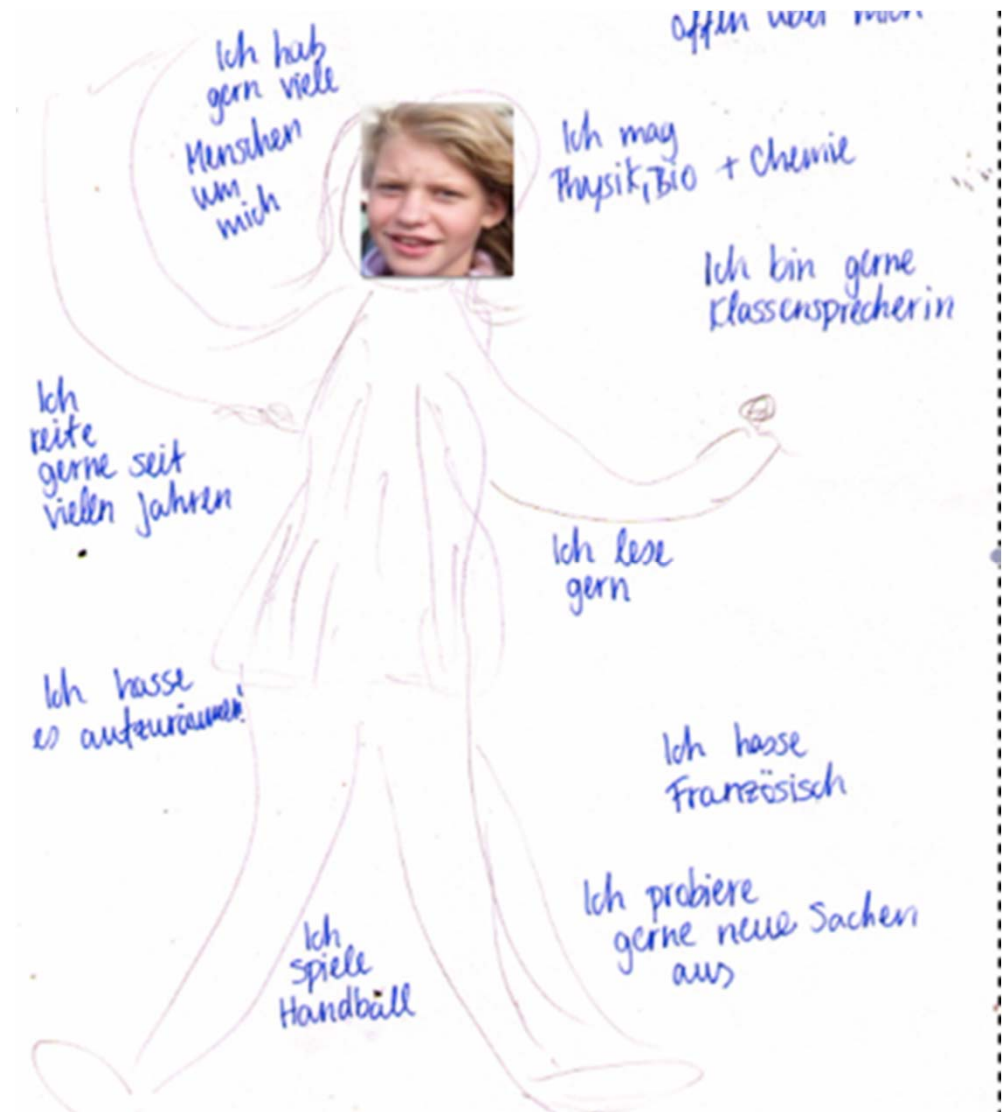 offen über mich
Ich hab
gern viele
Menschen
um
mich
Ich mag
Physik, Bio + Chemie
Ich bin gerne
Klassensprecherin
Ich
reite
gerne seit
vielen Jahren
Ich lese
gern
Ich hasse
es aufzuräumen!
Ich hasse
Französisch
Ich probiere
gerne neue Sachen
aus
Ich
spiele
Handball